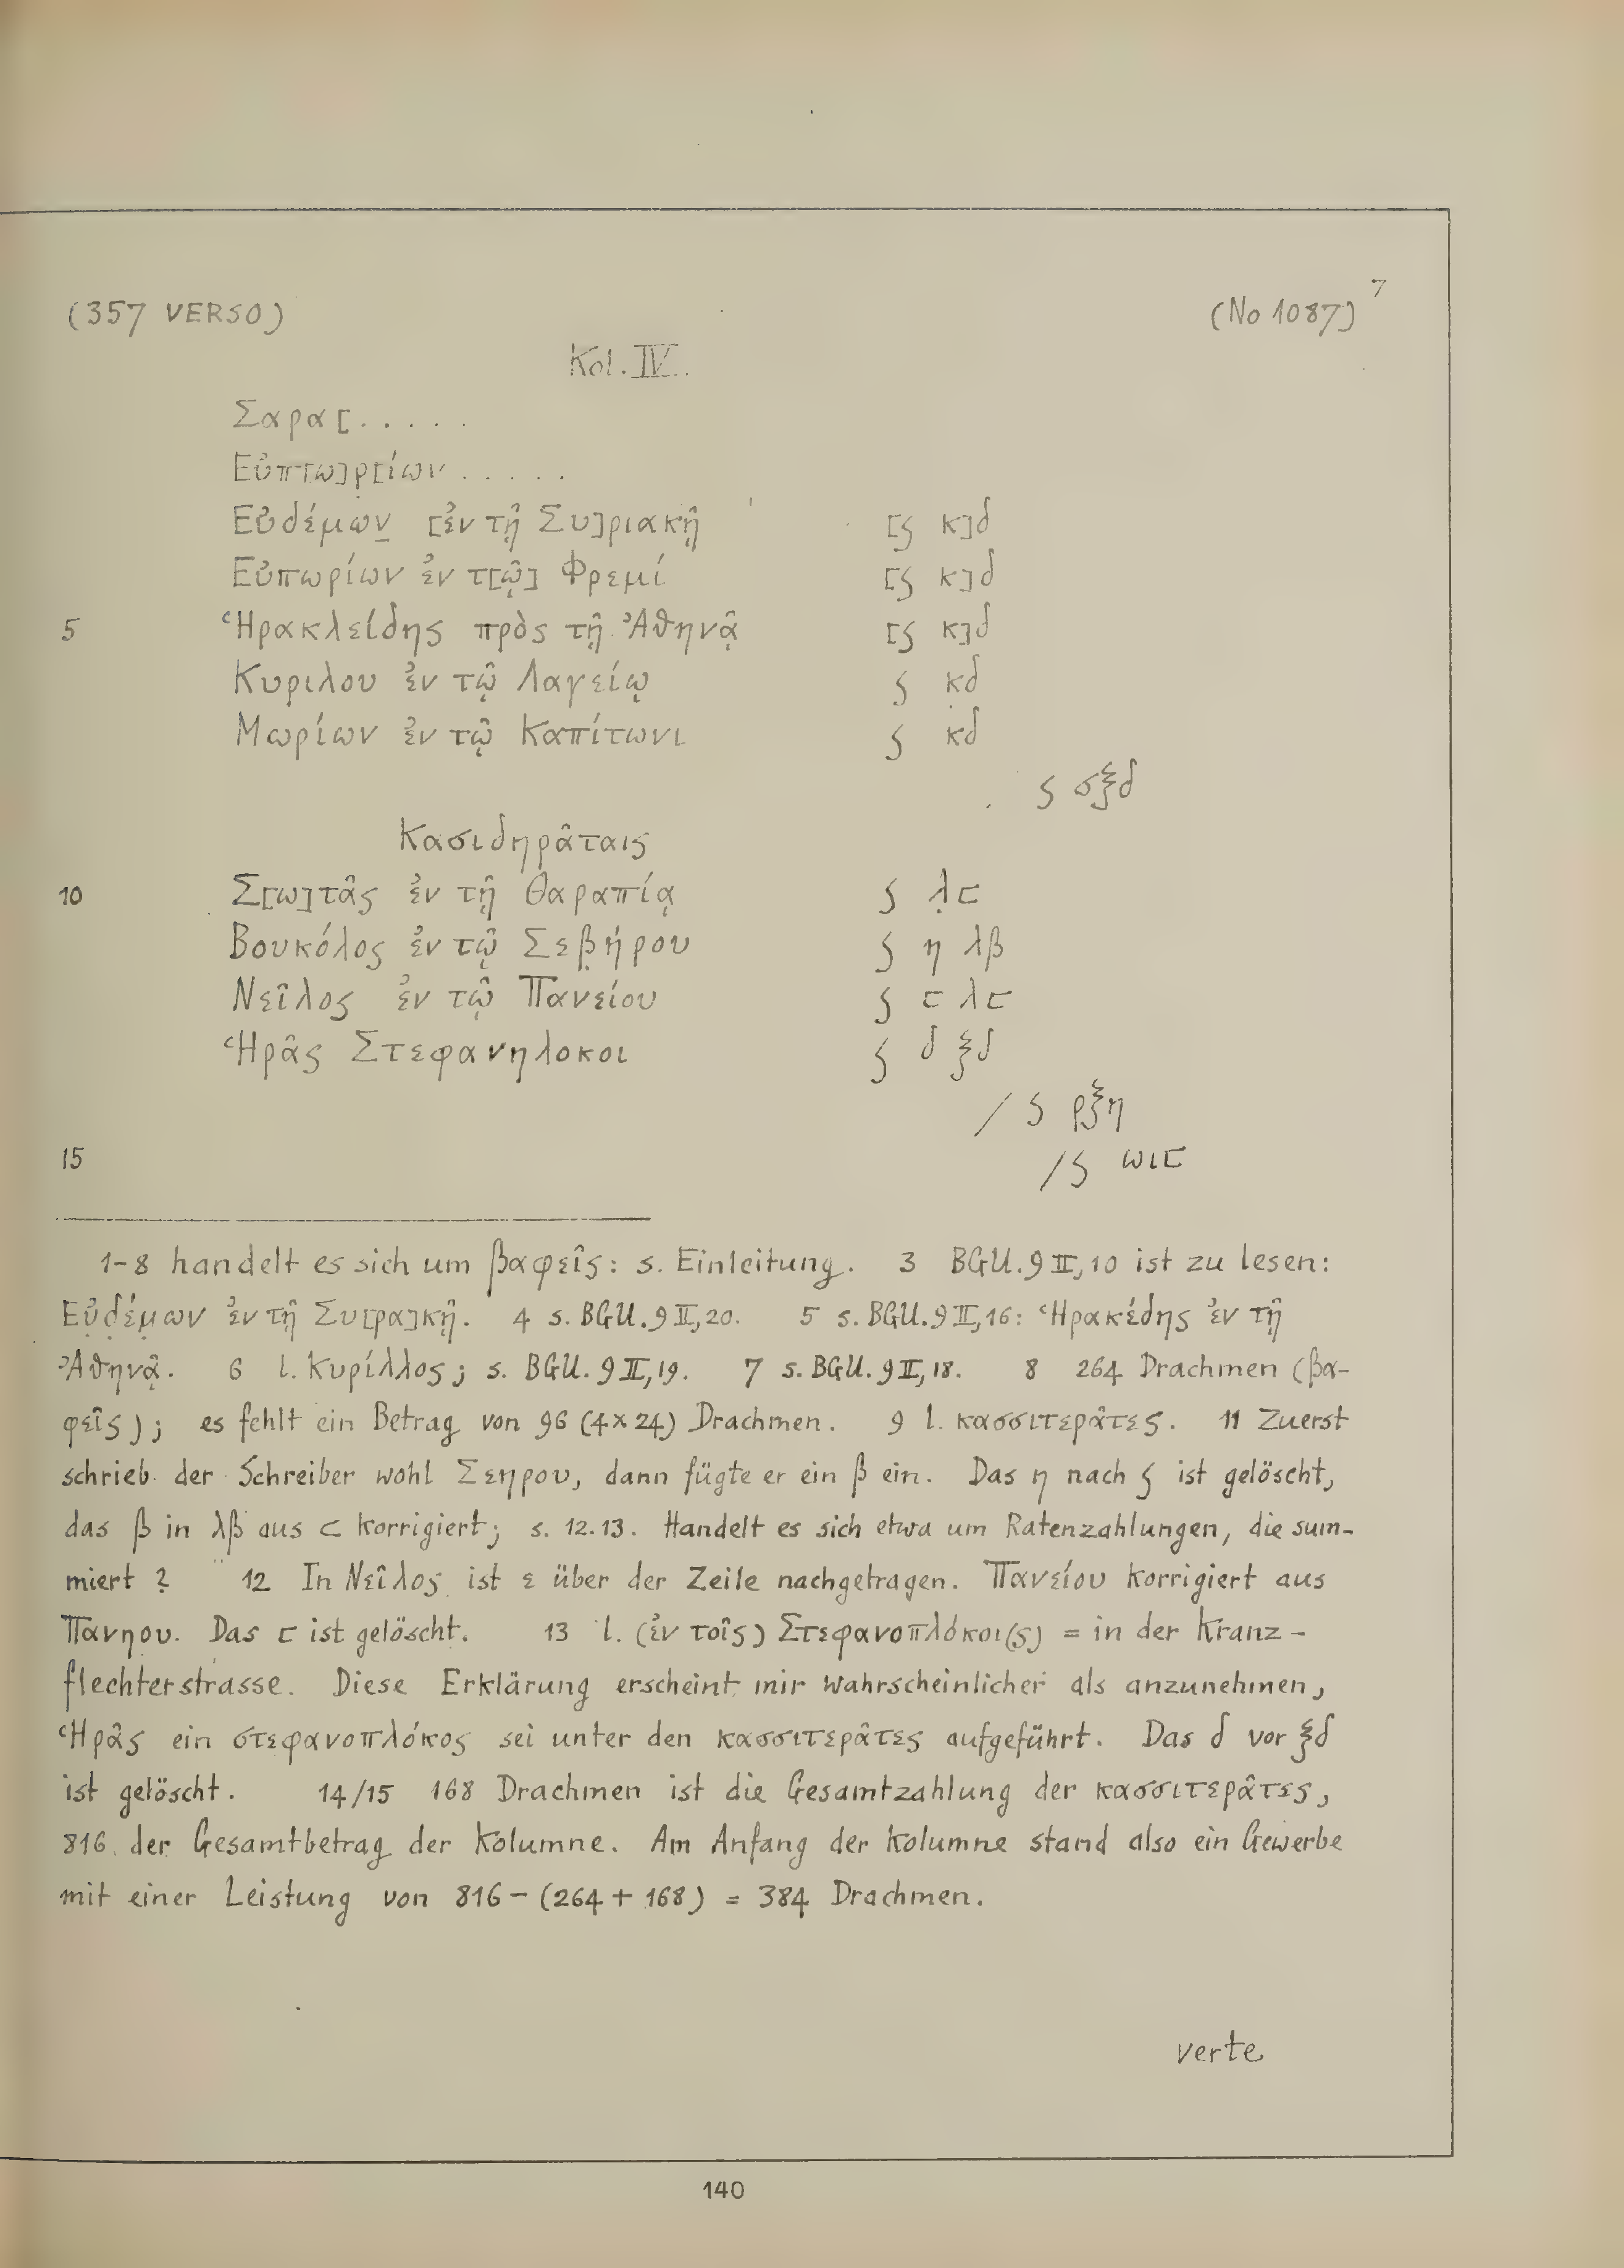 7
(357 VERSO) (No 1087)
Kol. IV.
Σαρα[.....
Εὐπ[ω]ρ[ίων.....
Εὐδέμων [ἐν τῇ Συ]ριακῇ [ς κ]δ
Εὐπωρίων ἐν τ[ῷ] Φρεμί [ς κ]δ
5 Ἡρακλείδης πρὸς τῇ Ἀθηνᾷ [ς κ]δ
Κυριλου ἐν τῷ Λαγείῳ ς κδ
Μωρίων ἐν τῷ Καπίτωνι ς κδ
ς σξδ
Κασιδηρᾶταις
10 Σ[ω]τᾶς ἐν τῇ Θαραπίᾳ ς λϲ
Βουκόλος ἐν τῷ Σεβήρου ς η λβ
Νεῖλος ἐν τῷ Πανείου ς ϲ λϲ
Ἡρᾶς Στεφανηλοκοι ς δ ξδ
/ ς ρξη
15 /ς ωιϲ
1-8 handelt es sich um βαφεῖς: s. Einleitung. 3 BGU. 9 II, 10 ist zu lesen:
Εὐδέμων ἐν τῇ Συ[ρα]κῇ. 4 s. BGU. 9 II, 20. 5 s. BGU. 9 II, 16: Ἡρακέδης ἐν τῇ
Ἀθηνᾷ. 6 l. Κυρίλλος; s. BGU. 9 II, 19. 7 s. BGU. 9 II, 18. 8 264 Drachmen (βα-
φεῖς); es fehlt ein Betrag von 96 (4×24) Drachmen. 9 l. κασσιτερᾶτες. 11 Zuerst
schrieb der Schreiber wohl Σεηρου, dann fügte er ein β ein. Das η nach ς ist gelöscht,
das β in λβ aus ϲ korrigiert; s. 12.13. Handelt es sich etwa um Ratenzahlungen, die sum-
miert ? 12 In Νεῖλος ist ε über der Zeile nachgetragen. Πανείου korrigiert aus
Πανηου. Das ϲ ist gelöscht. 13 l. (ἐν τοῖς) Στεφανοπλόκοι(ς) = in der Kranz-
flechterstrasse. Diese Erklärung erscheint mir wahrscheinlicher als anzunehmen,
Ἡρᾶς ein στεφανοπλόκος sei unter den κασσιτερᾶτες aufgeführt. Das δ vor ξδ
ist gelöscht. 14/15 168 Drachmen ist die Gesamtzahlung der κασσιτερᾶτες,
816 der Gesamtbetrag der Kolumne. Am Anfang der Kolumne stand also ein Gewerbe
mit einer Leistung von 816 - (264 + 168) = 384 Drachmen.
verte
140